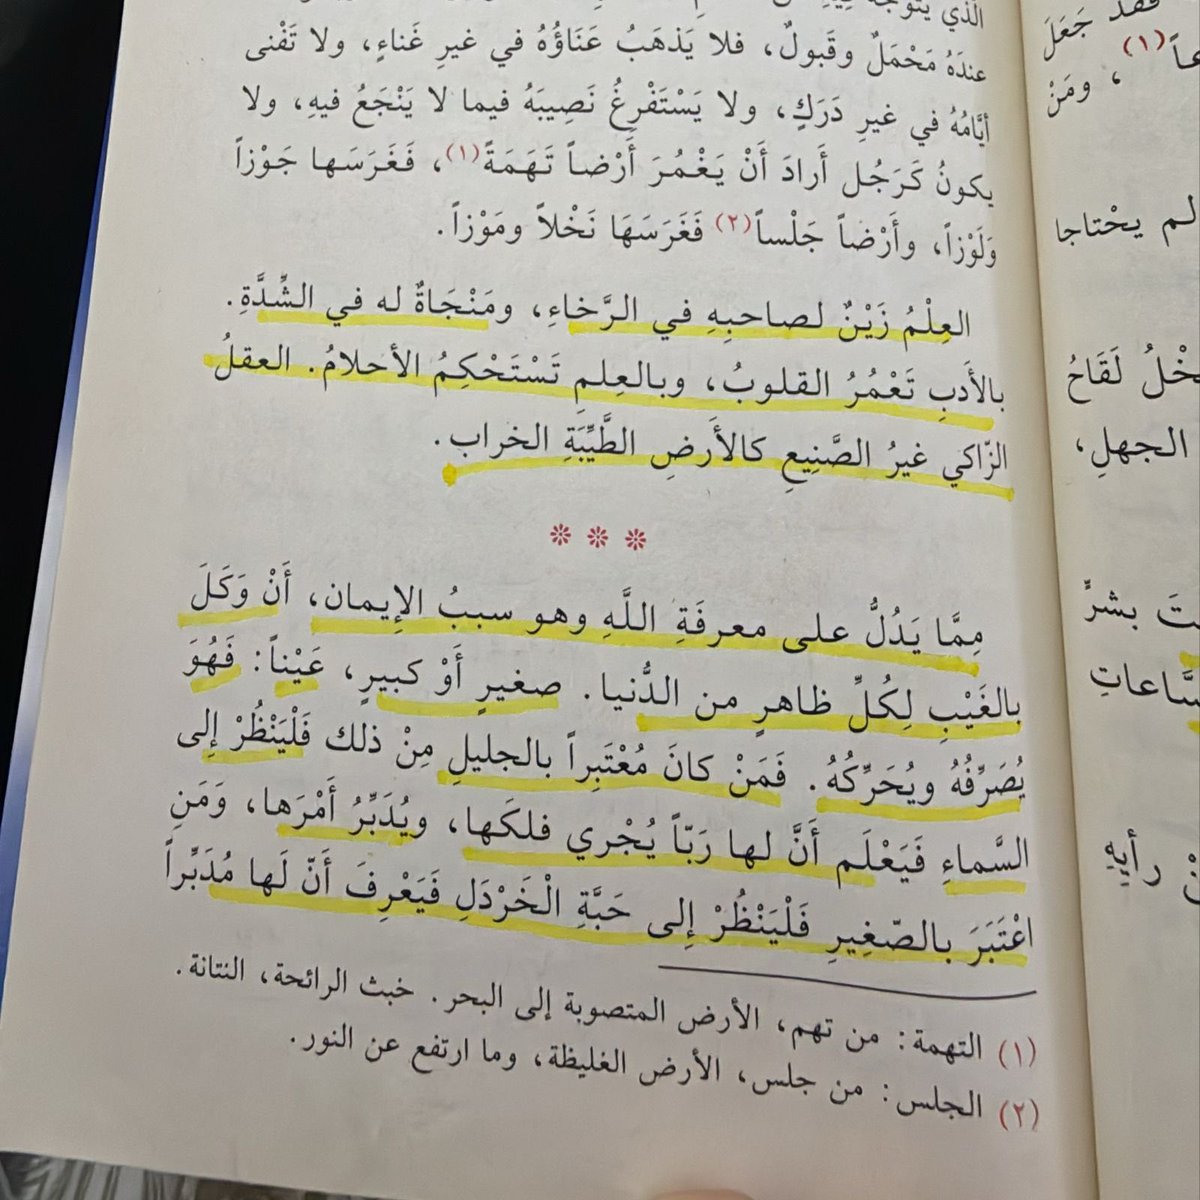 الذي يتوجه
عندَهُ مَحْمَلٌ وقَبولٌ، فلا يَذهَبُ عَنَاؤُهُ في غيرِ غَناءٍ، ولا تَفْنى
أيَّامُهُ في غيرِ دَرَكٍ، ولا يَسْتَفْرِغُ نَصِيبَهُ فيما لا يَنْجَعُ فيهِ، ولا
يكونُ كَرَجُل أَرادَ أَنْ يَعْمُرَ أَرْضاً تَهَمَةً(١)، فَغَرَسَها جَوْزاً
وَلَوْزاً، وأَرْضاً جَلْساً(٢) فَغَرَسَهَا نَخْلاً ومَوْزاً.
العِلْمُ زَيْنٌ لصاحبِهِ في الرَّخاءِ، ومَنْجَاةٌ له في الشِّدَّةِ.
بالأَدبِ تَعْمُرُ القلوبُ، وبالعِلمِ تَسْتَحْكِمُ الأحلامُ. العقلُ
الزّاكي غيرُ الصَّنِيعِ كالأَرضِ الطَّيِّبَةِ الخراب.
***
مِمَّا يَدُلُّ على معرفَةِ اللَّهِ وهو سببُ الإِيمان، أَنْ وَكَلَ
بالغَيْبِ لِكُلِّ ظاهرٍ من الدُّنيا. صغيرٍ أَوْ كبيرٍ، عَيْناً: فَهُوَ
يُصَرِّفُهُ ويُحَرِّكُهُ. فَمَنْ كانَ مُعْتَبِراً بالجليلِ مِنْ ذلك فَلْيَنْظُرْ إِلى
السَّماءِ فَيَعْلَم أَنَّ لها رَبّاً يُجْري فلكَها، ويُدَبِّرُ أَمْرَها، وَمَنِ
اعْتَبَرَ بالصّغِيرِ فَلْيَنْظُرْ إِلى حَبَّةِ الْخَرْدَلِ فَيَعْرِفَ أَنّ لَها مُدَبِّراً
(١) التهمة: من تهم، الأرض المتصوبة إلى البحر. خبث الرائحة، النتانة.
(٢) الجلس: من جلس، الأرض الغليظة، وما ارتفع عن النور.
فقد جَعَلَ
(١)، ومَنْ
لم يحْتاجا
لَقَاحُ
الجهلِ،
بشرٍّ
رأيِهِ